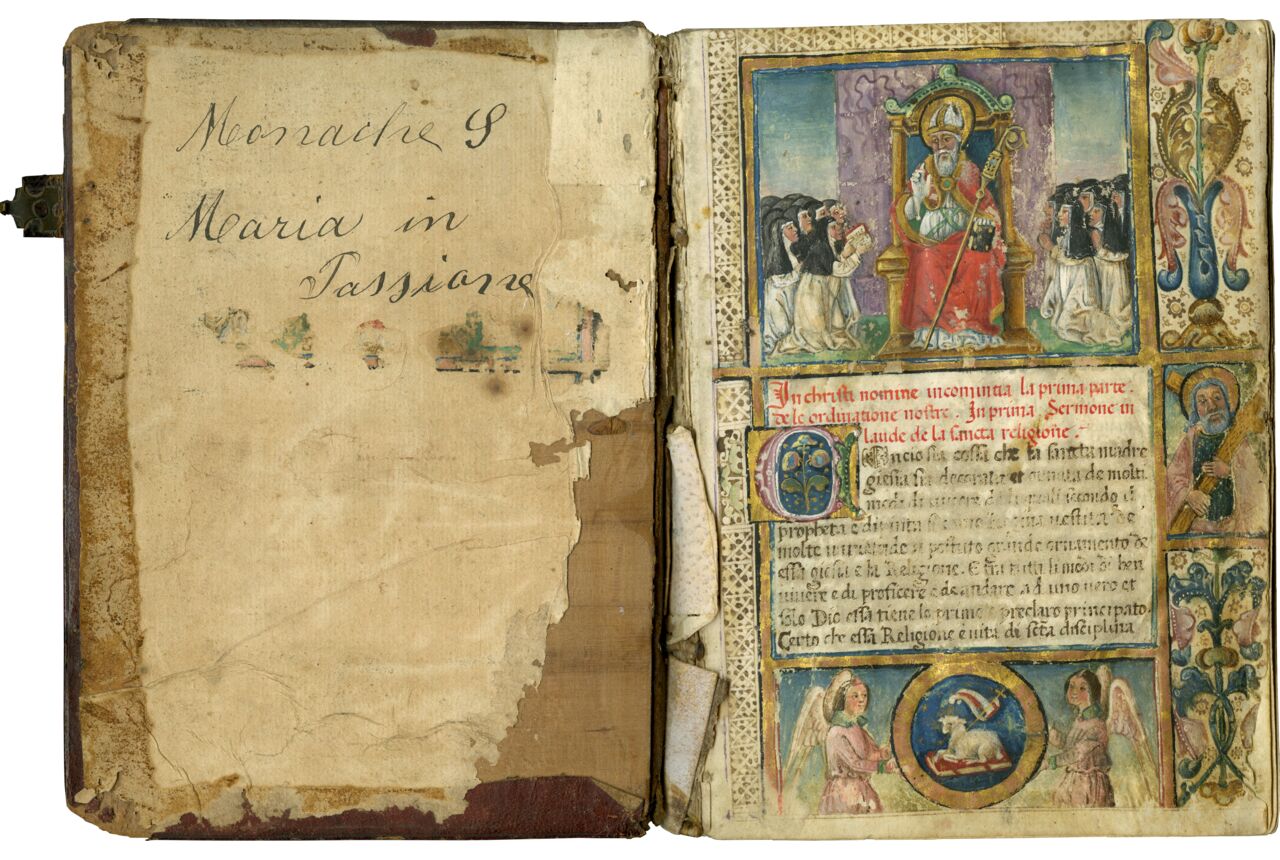 Monache S
Maria in
Passione
In christi nomine incomintia la prima parte
de le ordinatione nostre. In prima Sermone in
laude de la sancta religione.
Concio sia cossa che la sancta madre
giesia sia decorata et ornata de molti
modi di vivere de li quali secondo il
propheta e di vita
molte grande ornamento de
essa giesia e la Religione. E fra tutti li modi di ben
vivere e di proficere e de andare ad uno vero et
solo Dio essa tiene lo primo e preclaro principato.
Certo che essa Religione e vita di scta disciplina